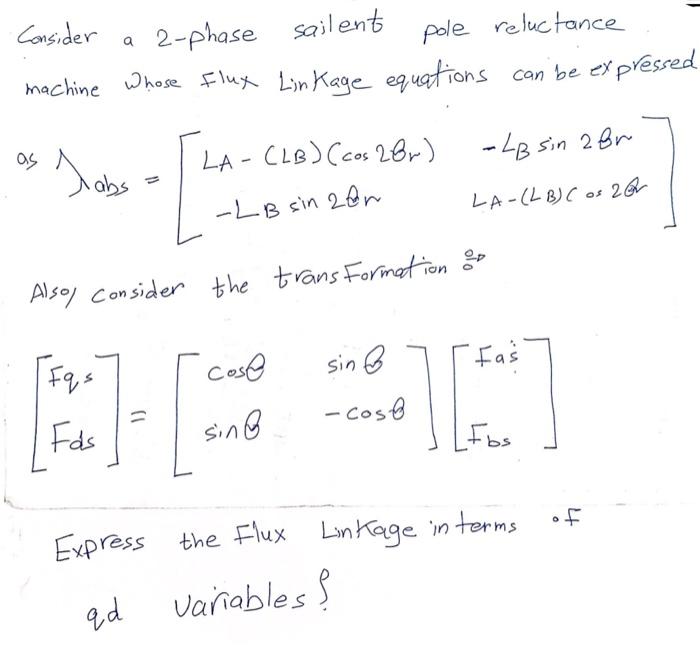 Consider a 2-phase sailent pole reluctance
machine Whose Flux Linkage equations can be expressed
as λabs = [ LA - (LB)(cos 2θr) -LB sin 2θr
-LB sin 2θr LA-(LB)Cos 2θr ]
Also, consider the transFormation :
[ Fqs = [ cosθ sinθ [ Fas
Fds ] sinθ -cosθ ] Fbs ]
Express the Flux Linkage in terms of
qd variables?